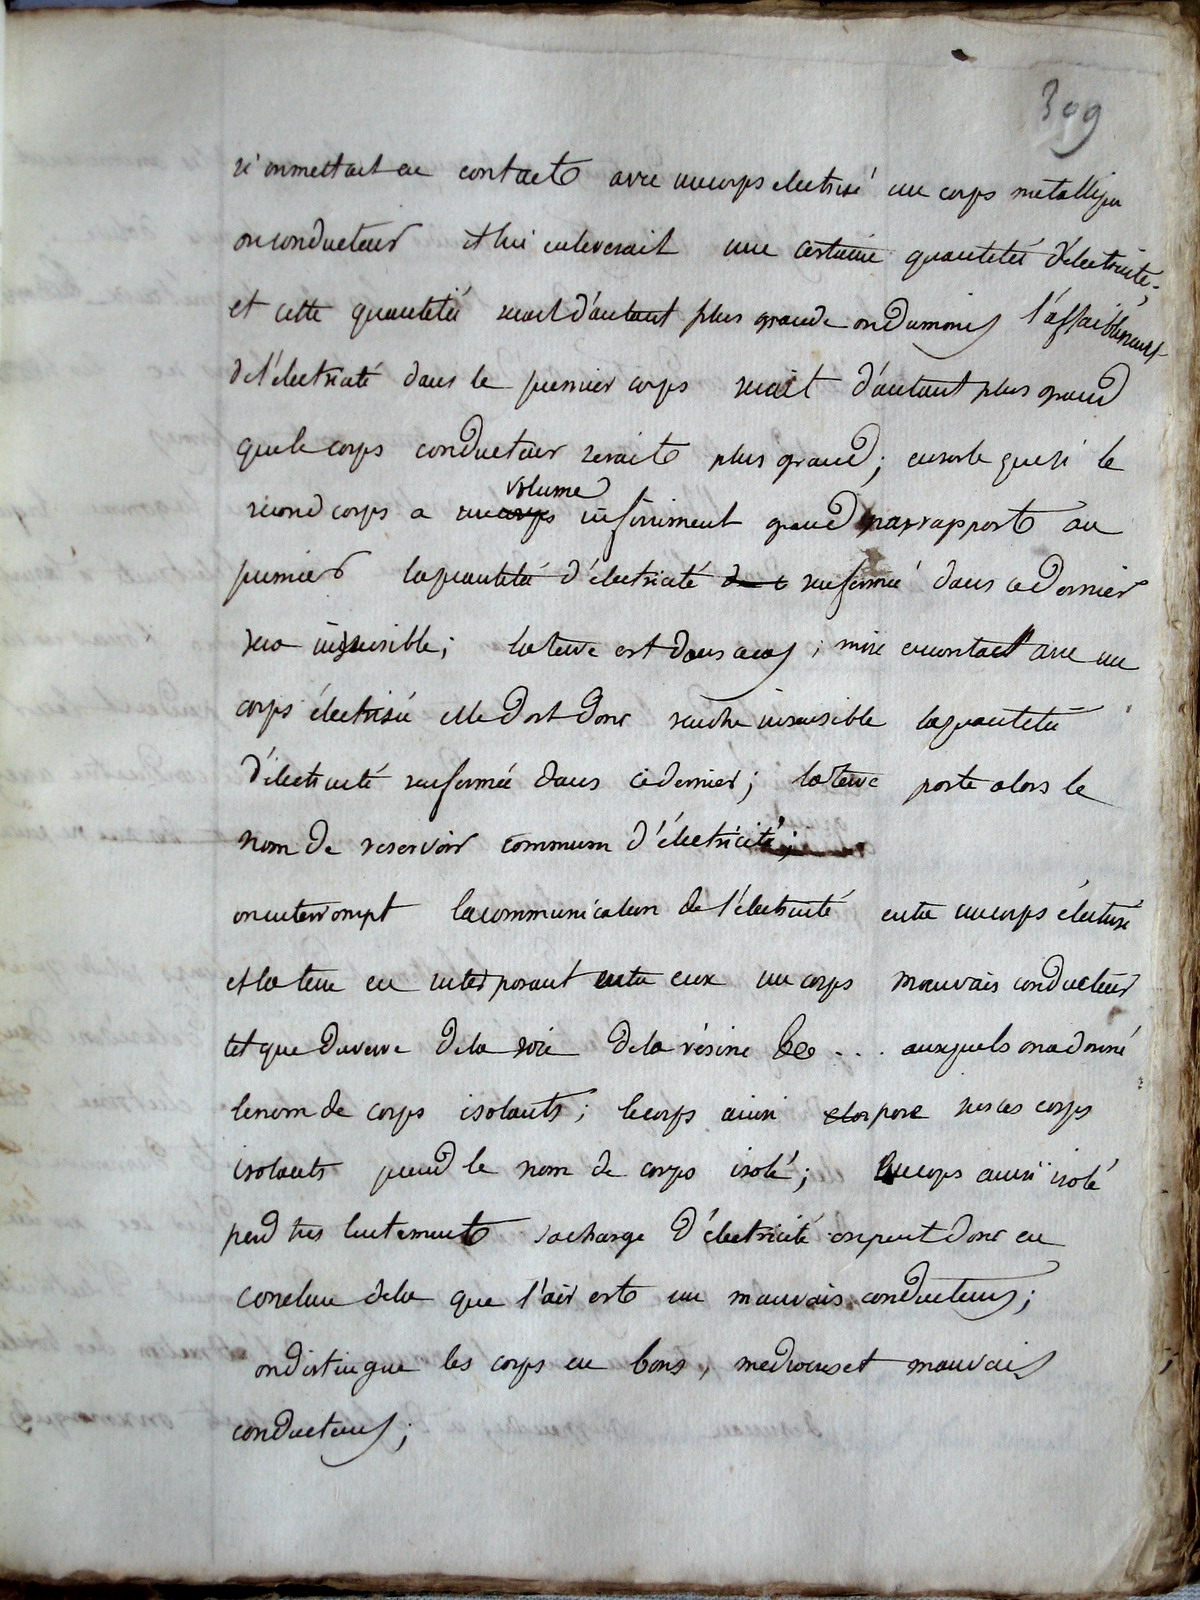 399
si on mettait en contact avec un corps electrisé un corps metallique
ou conducteur il lui enleverait une certaine quantité d'électricité,
et cette quantité serait d'autant plus grande ou du moins l'affaiblissement
de l'électricité dans le premier corps serait d'autant plus grand
que le corps conducteur serait plus grand; ensorte que si le
volume
second corps a un corps infiniment grand par rapport au
premier la quantité d'électricité renfermée dans ce dernier
sera insensible; la terre est dans ce cas; mise en contact avec un
corps électrisé elle doit donc rendre insensible la quantité
d'électricité renfermée dans ce dernier; la terre porte alors le
nom de reservoir commun d'électricité;
on interrompt la communication de l'électricité entre un corps électrisé
et la terre en interposant entre eux un corps mauvais conducteur
tel que du verre de la soie de la résine &c ... auxquels on a donné
le nom de corps isolants; le corps ainsi posé sur ces corps
isolants prend le nom de corps isolé; un corps ainsi isolé
perd tres lentement sa charge d'électricité on peut donc en
conclure dela que l'air est un mauvais conducteurs;
on distingue les corps en bons, mediocres et mauvais
conducteurs;